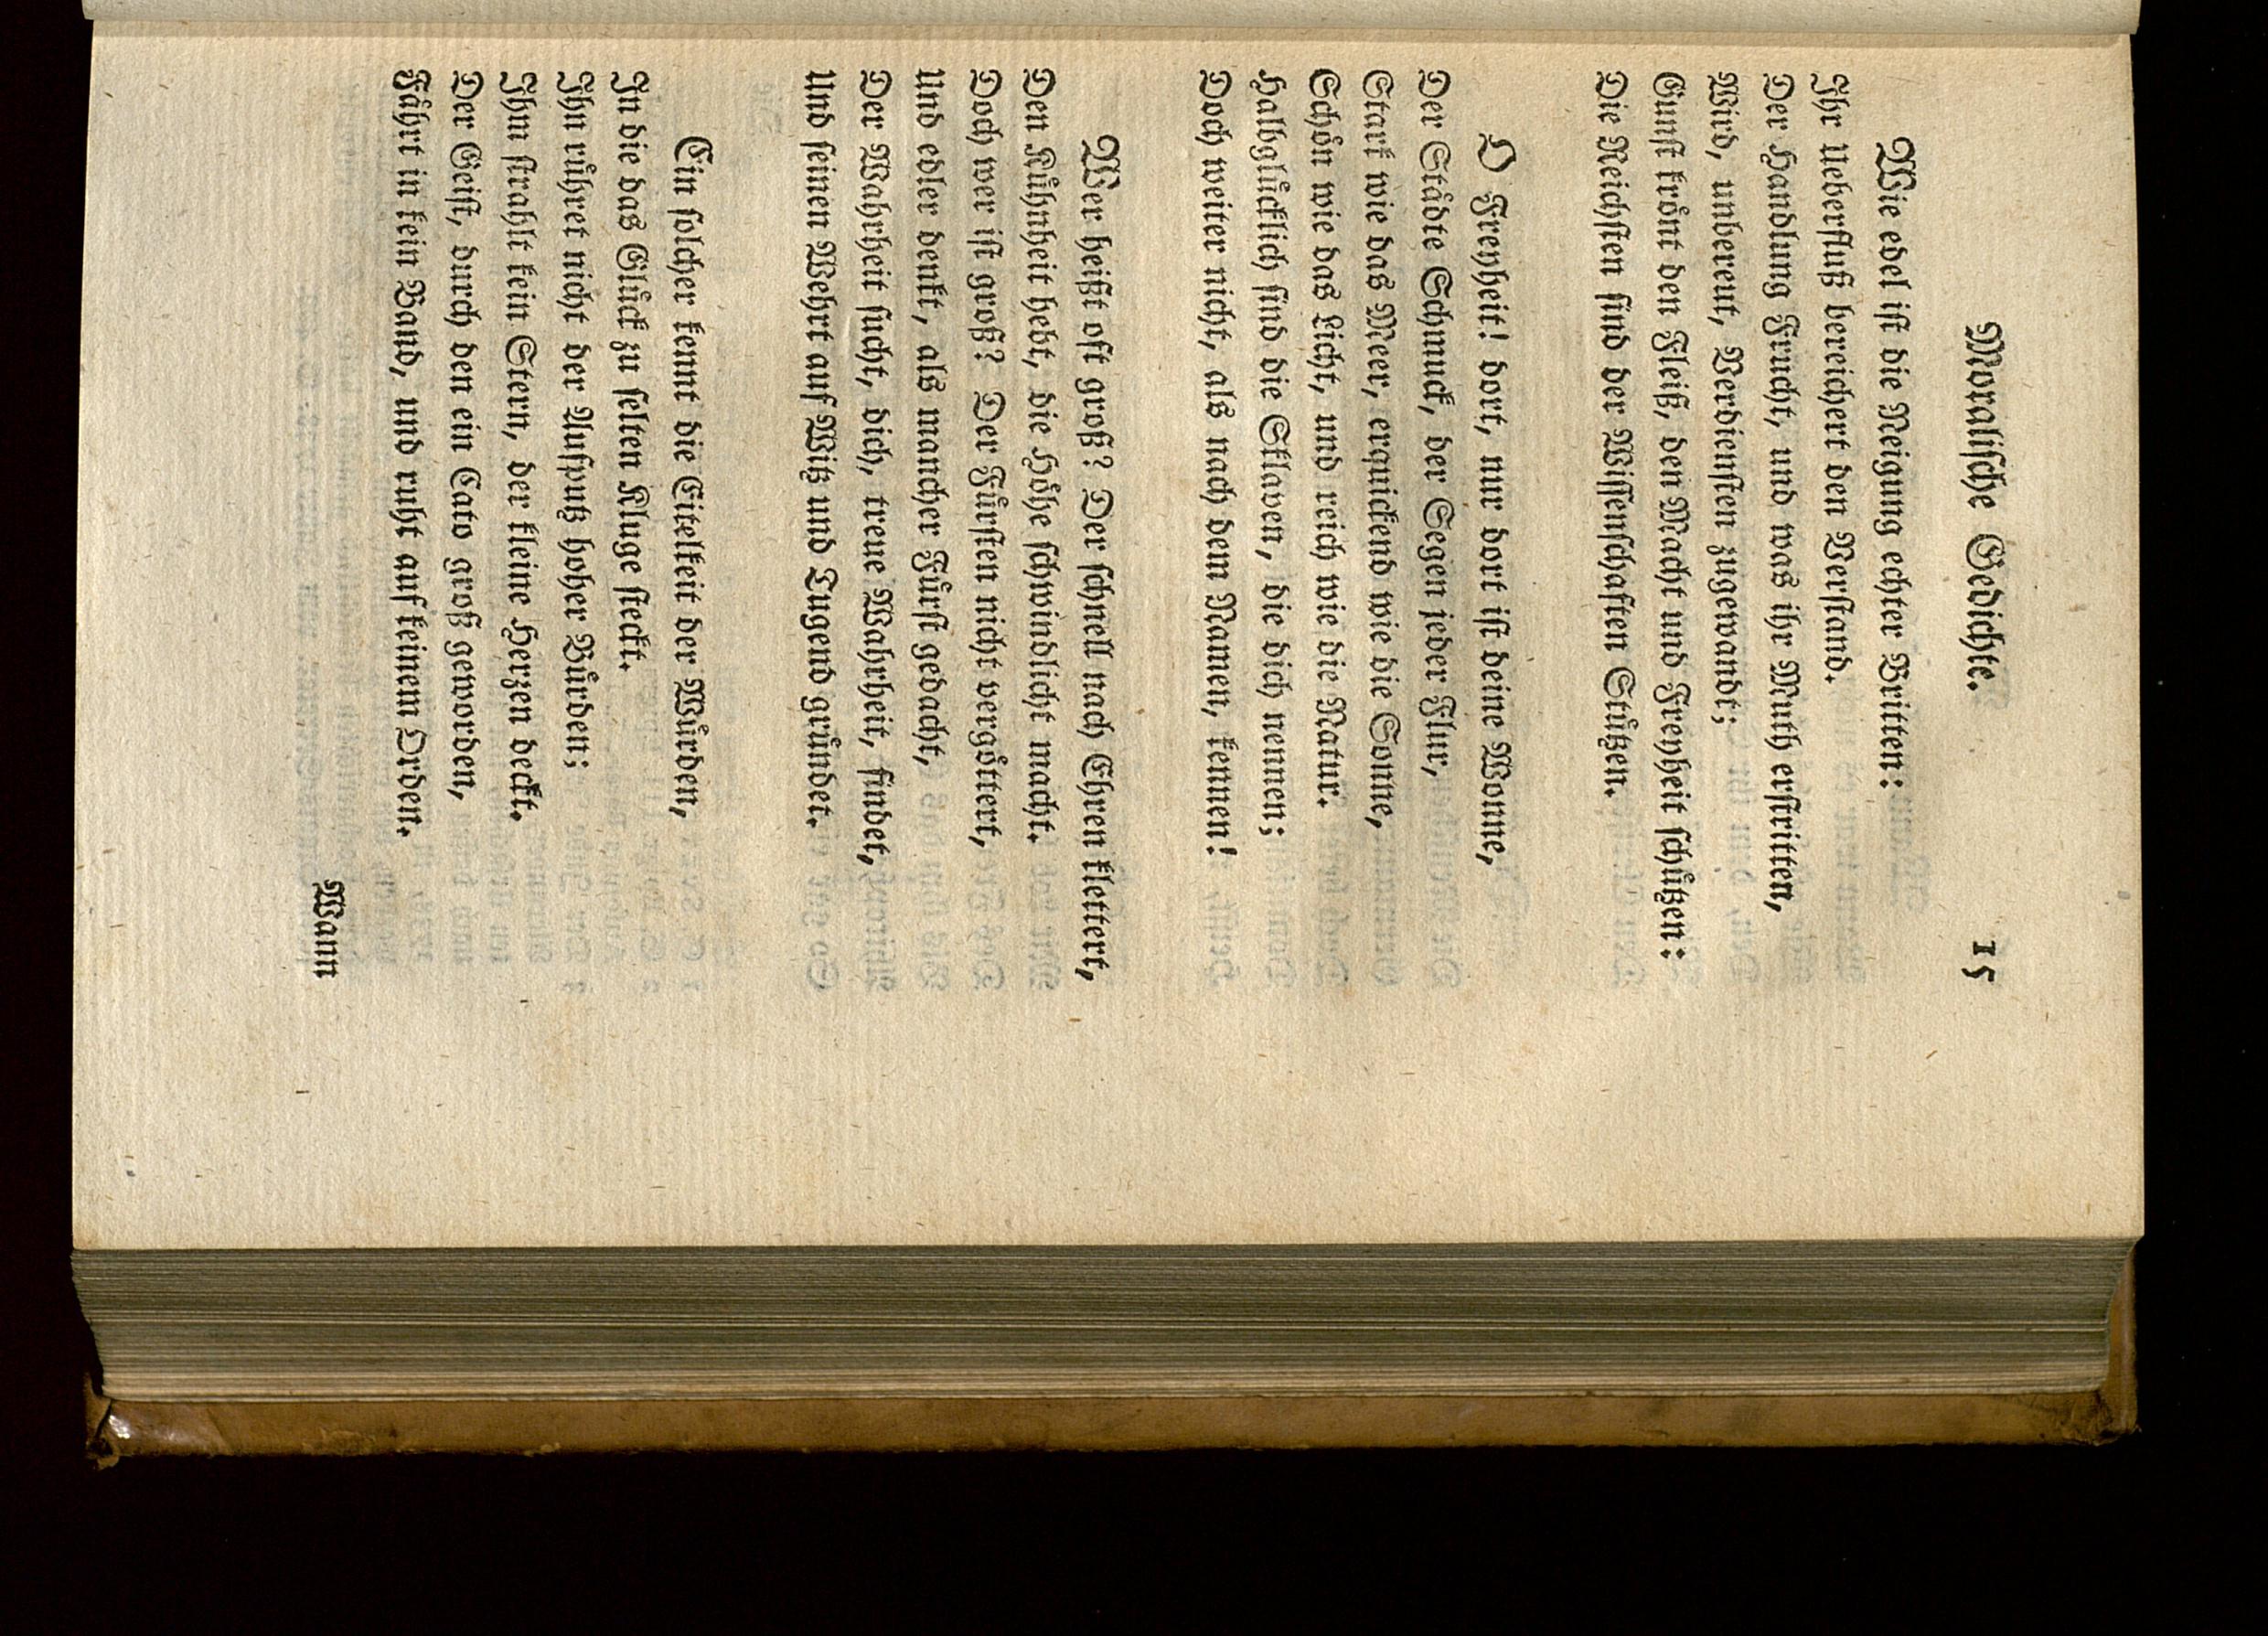 Moraliſche Gedichte. 15
Wie edel iſt die Neigung echter Britten:
Ihr Ueberfluß bereichert den Verſtand.
Der Handlung Frucht, und was ihr Muth erſtritten,
Wird, unbereut, Verdienſten zugewandt;
Gunſt kroͤnt den Fleiß, den Macht und Freyheit ſchuͤtzen:
Die Reichſten ſind der Wiſſenſchaften Stuͤtzen.
O Freyheit! dort, nur dort iſt deine Wonne,
Der Staͤdte Schmuck, der Segen jeder Flur,
Stark wie das Meer, erquickend wie die Sonne,
Schoͤn wie das Licht, und reich wie die Natur.
Halbgluͤcklich ſind die Sklaven, die dich nennen;
Doch weiter nicht, als nach dem Namen, kennen!
Wer heißt oft groß? Der ſchnell nach Ehren klettert,
Den Kuͤhnheit hebt, die Hoͤhe ſchwindlicht macht.
Doch wer iſt groß? Der Fuͤrſten nicht vergoͤttert,
Und edler denkt, als mancher Fuͤrſt gedacht,
Der Wahrheit ſucht, dich, treue Wahrheit, findet,
Und ſeinen Wehrt auf Witz und Tugend gruͤndet.
Ein ſolcher kennt die Eitelkeit der Wuͤrden,
In die das Gluͤck zu ſelten Kluge ſteckt.
Ihn ruͤhret nicht der Aufputz hoher Buͤrden;
Ihm ſtrahlt kein Stern, der kleine Herzen deckt.
Der Geiſt, durch den ein Cato groß geworden,
Faͤhrt in kein Band, und ruht auf keinem Orden.
Wann